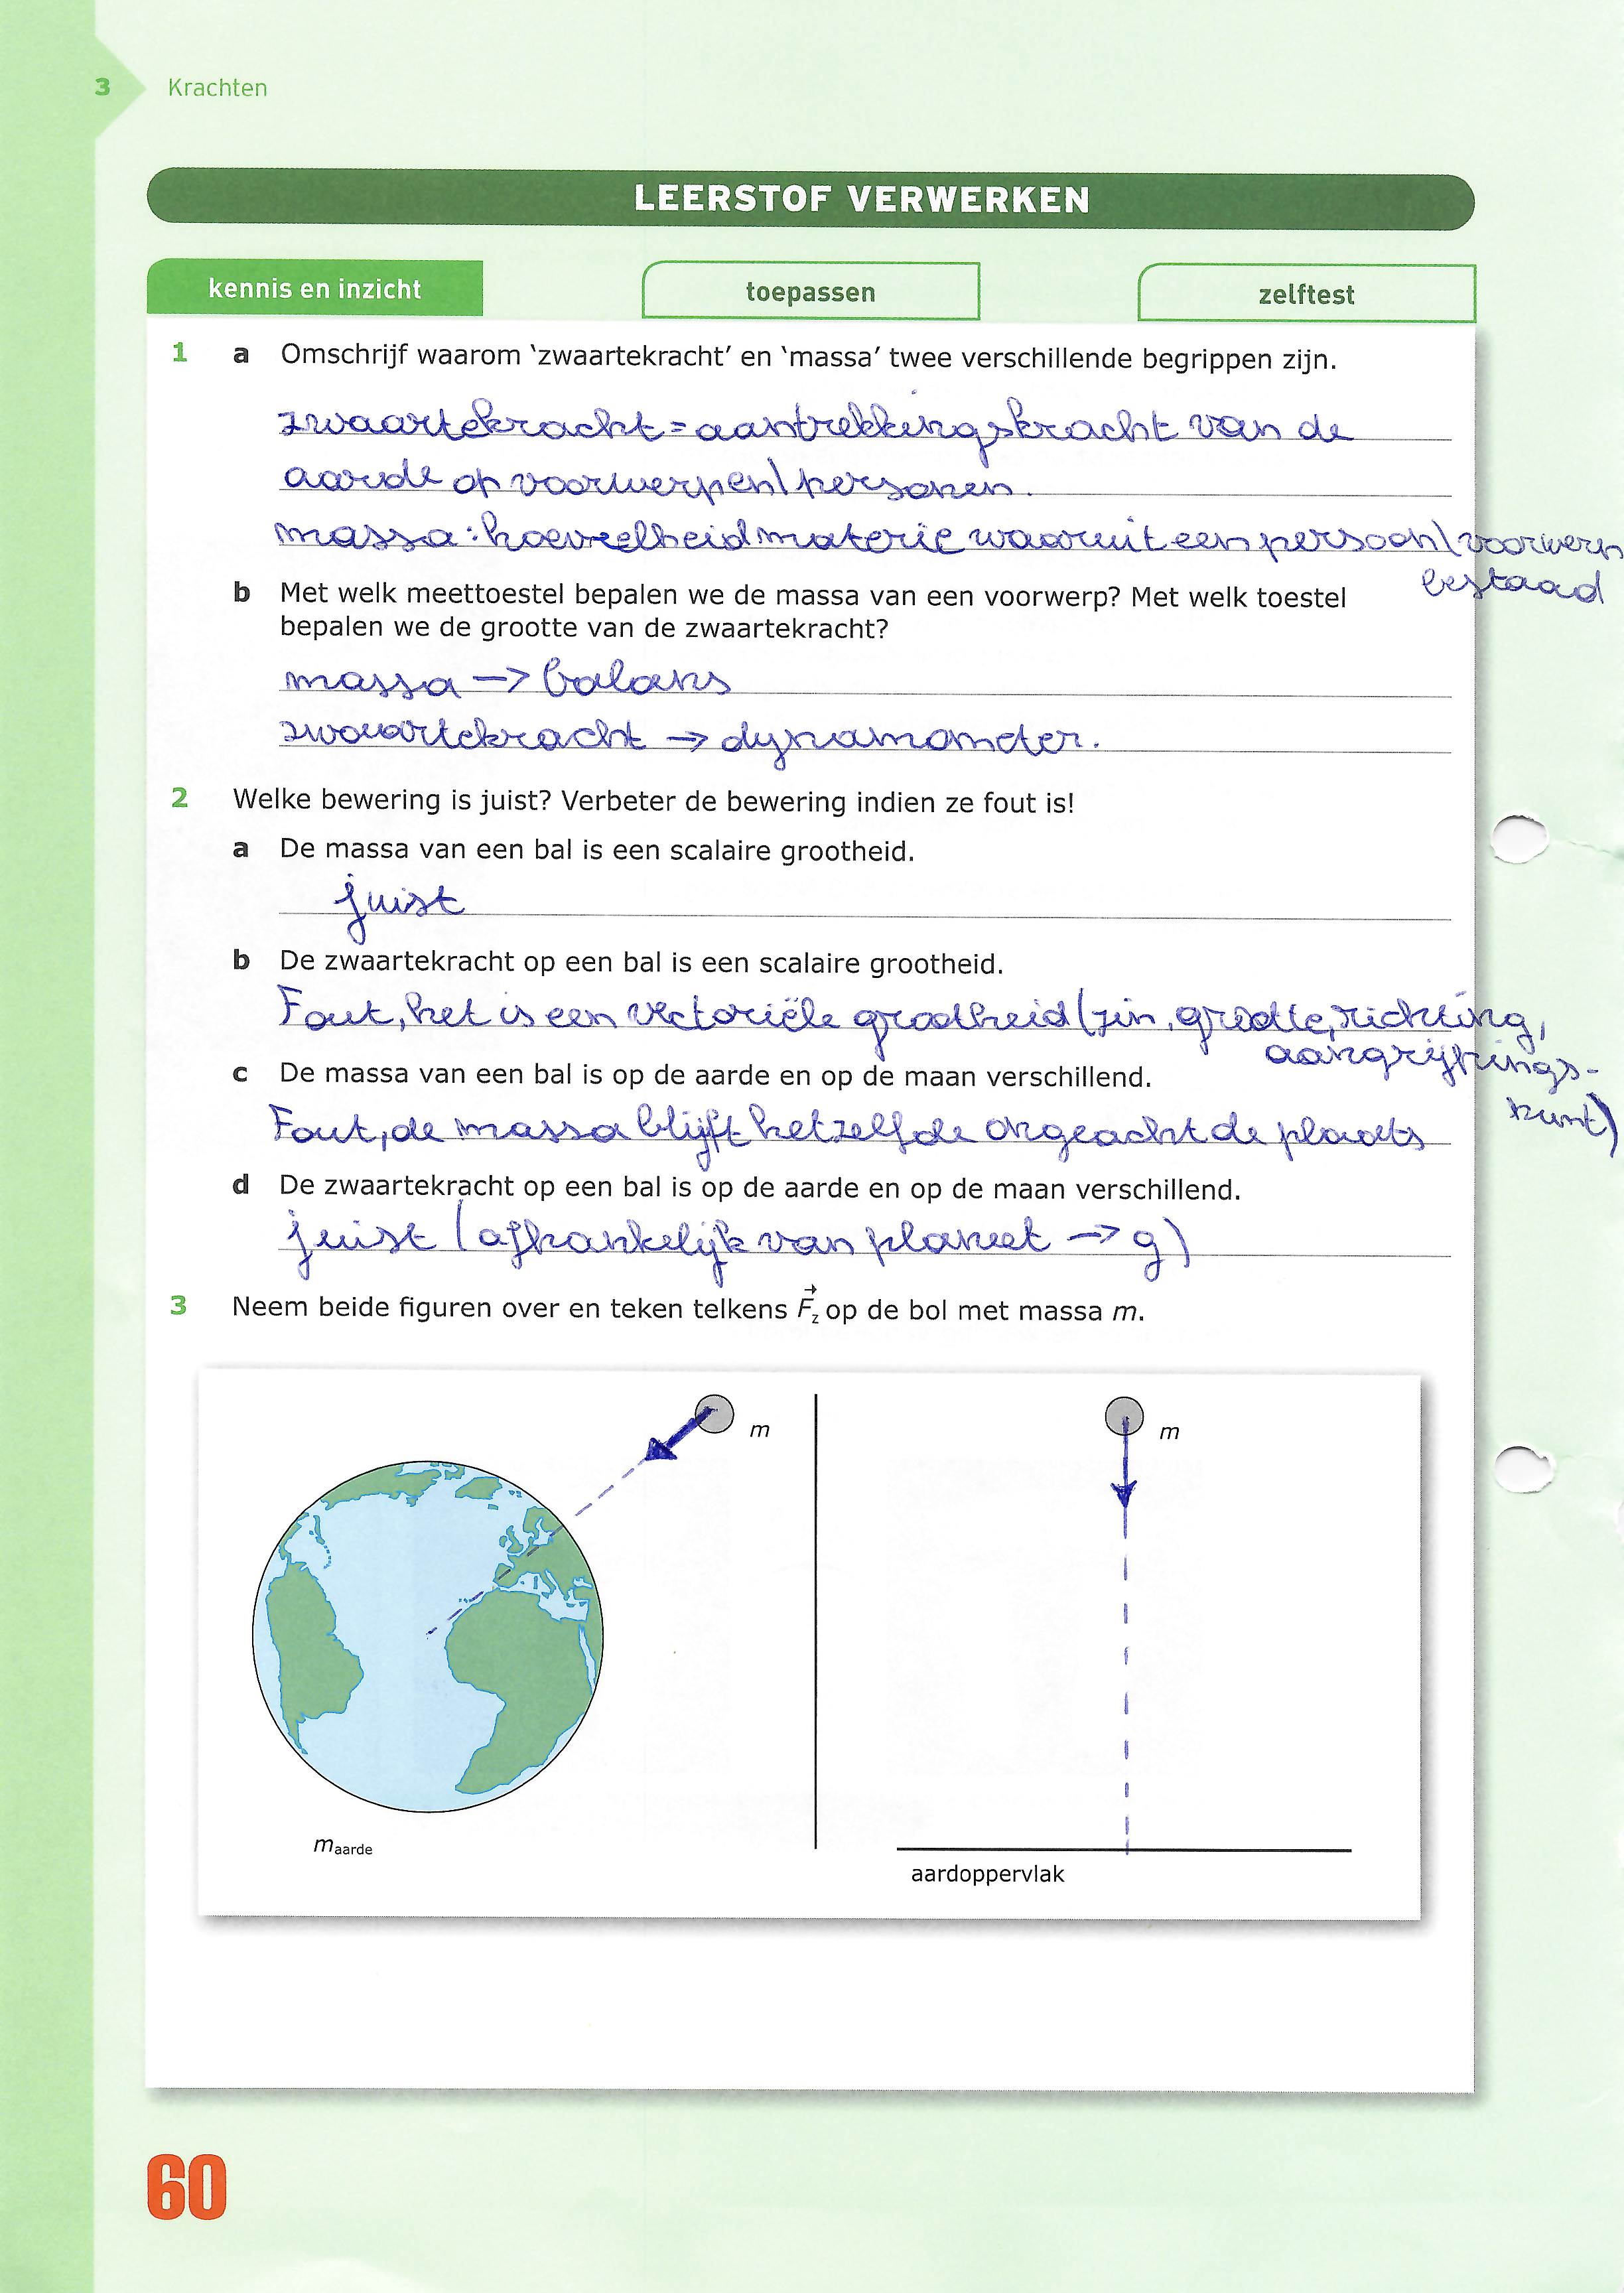 3 Krachten
LEERSTOF VERWERKEN
kennis en inzicht toepassen zelftest
1 a Omschrijf waarom ‘zwaartekracht’ en ‘massa’ twee verschillende begrippen zijn.
zwaartekracht = aantrekkingskracht van de
aarde op voorwerpen\personen.
massa: hoeveelheid materie waaruit een persoon\voorwerp
bestaad
b Met welk meettoestel bepalen we de massa van een voorwerp? Met welk toestel
bepalen we de grootte van de zwaartekracht?
massa → balans
zwaartekracht → dynamometer.
2 Welke bewering is juist? Verbeter de bewering indien ze fout is!
a De massa van een bal is een scalaire grootheid.
juist
b De zwaartekracht op een bal is een scalaire grootheid.
Fout, het is een vectoriële grootheid (zin, grootte, richting,
aangrijpings-
punt)
c De massa van een bal is op de aarde en op de maan verschillend.
Fout, de massa blijft hetzelfde ongeacht de plaats
d De zwaartekracht op een bal is op de aarde en op de maan verschillend.
juist (afhankelijk van planeet → g)
3 Neem beide figuren over en teken telkens F⃗z op de bol met massa m.
m
m
maarde
aardoppervlak
60